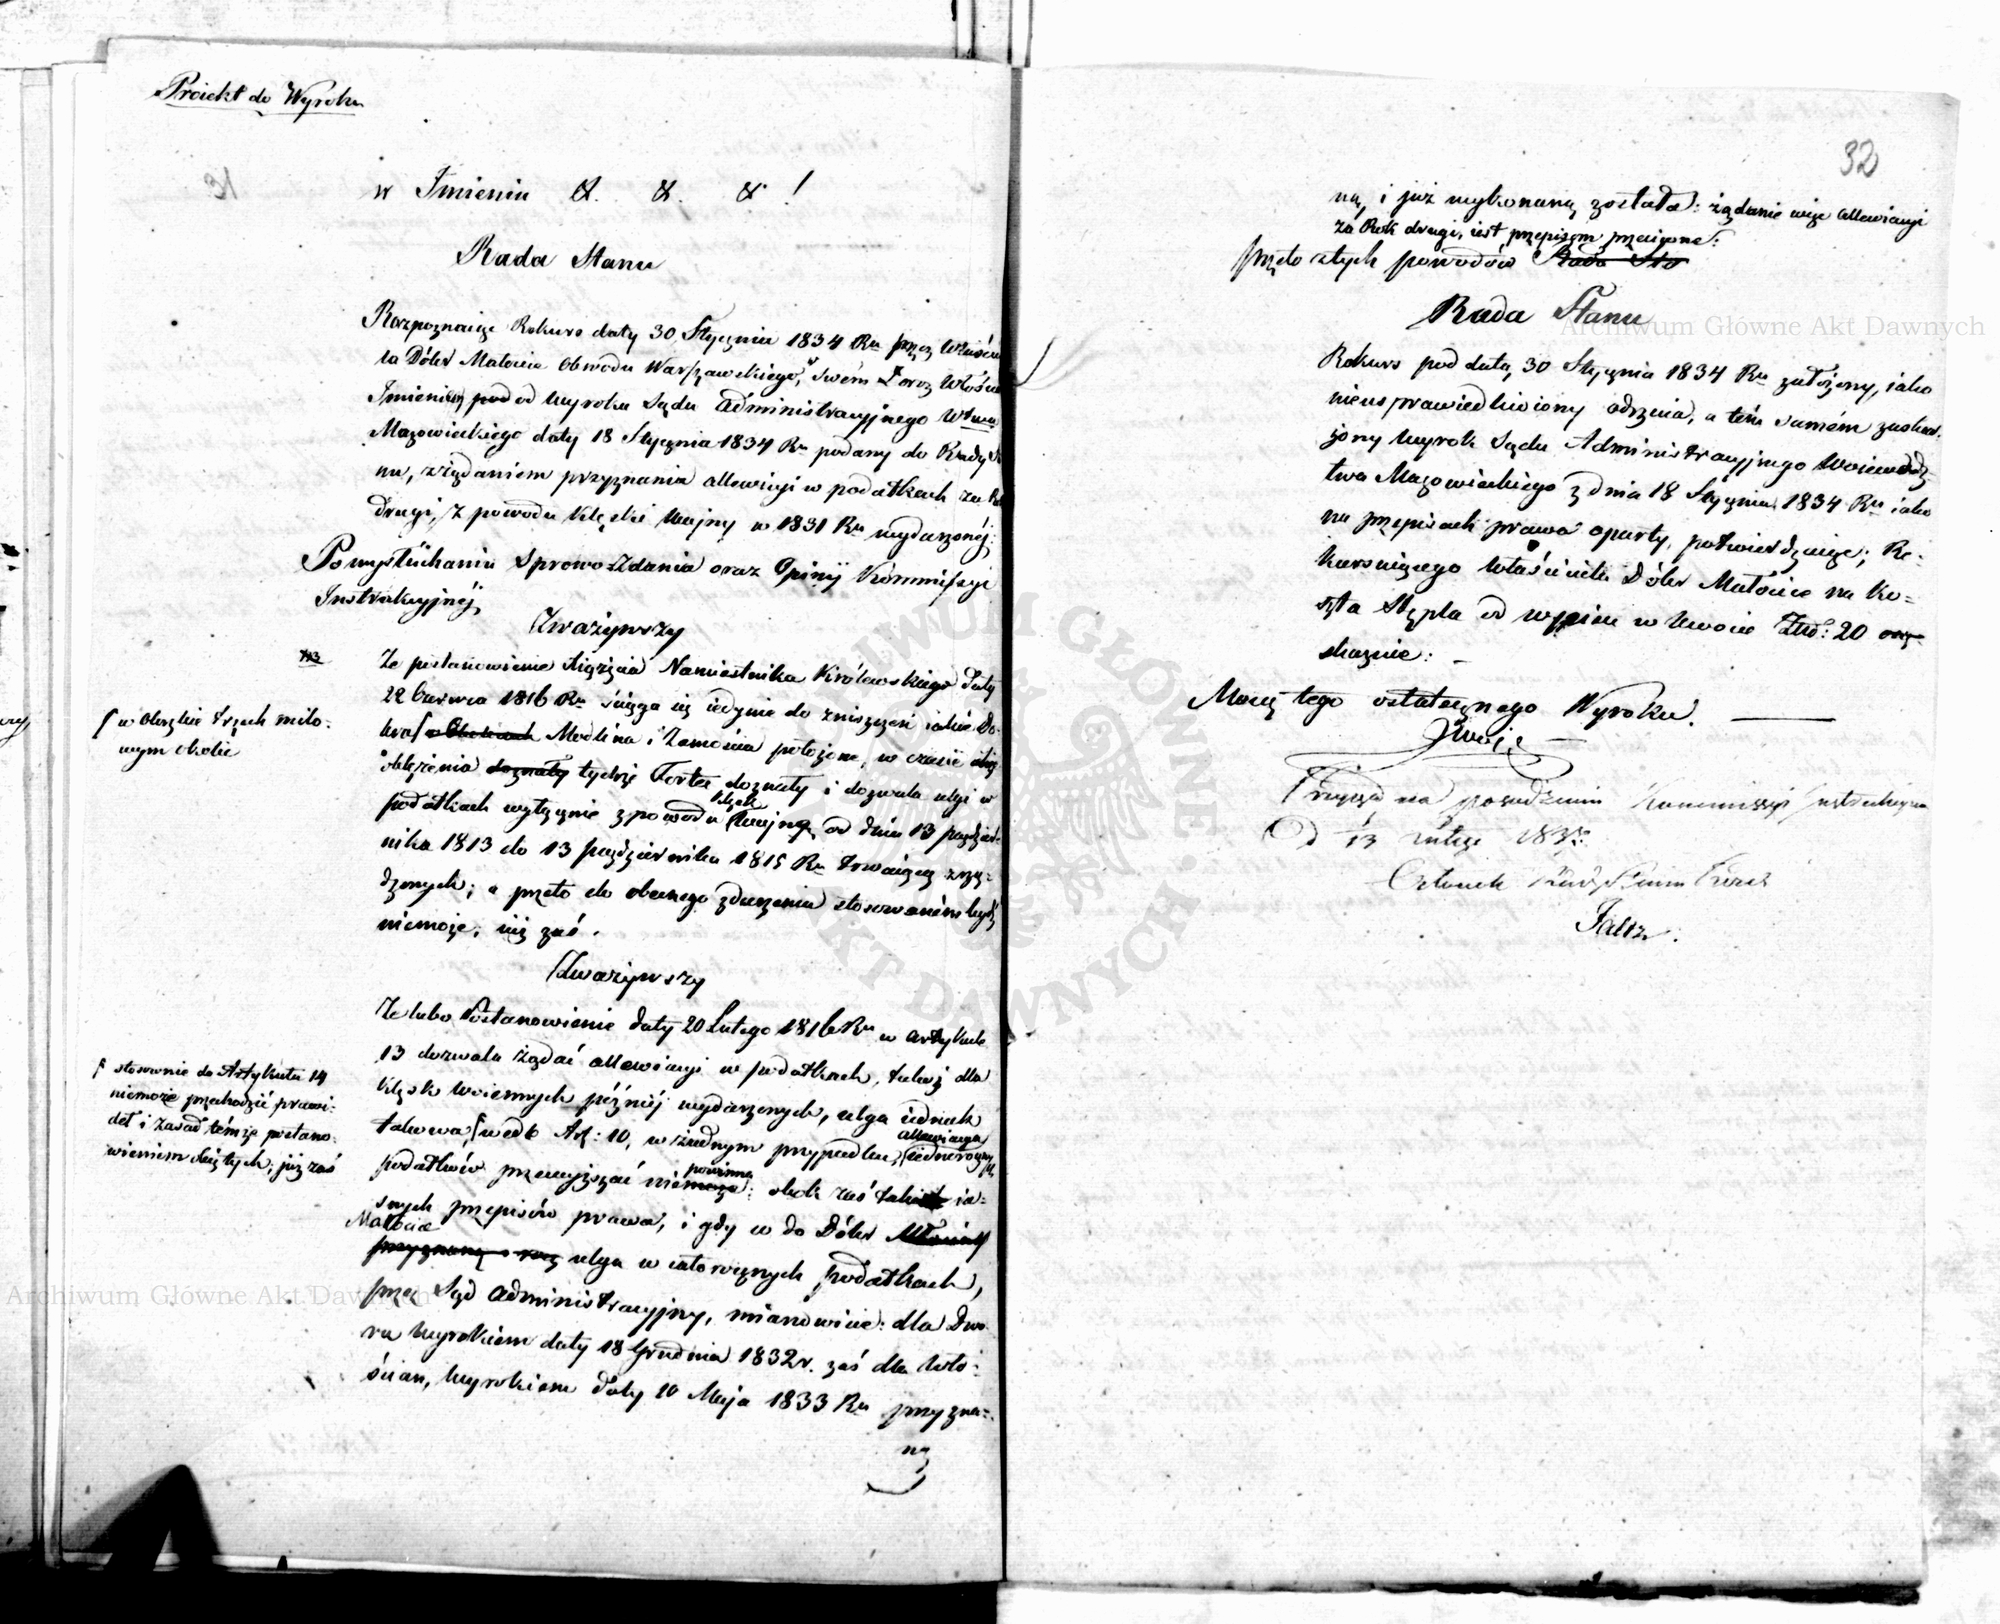 Proiekt do Wyroku
w Imieniu &. &. &!
Rada Stanu
Rozpoznaiąc Rekurs daty 30 Stycznia 1834 Ru przez Właścicie
la Dóbr Małocie Obwodu Warszawskiego, w swém i oraz Włościan
Imieniem od wyroku Sądu Administracyjnego Wdtwa
Mazowieckiego daty 18 Stycznia 1834 Ru podany do Rady Sta
nu, z żądaniem przyznania allewiacyi w podatkach za Rok
drugi, z powodu klęski wojny w 1831 Ru wydarzonéj:
Po wysłuchaniu Sprawozdania oraz Opinij Kommissyi
Instrukcyjnéj
Zważywszy
Że postanowienie Xięzcia Namiestnika Królewskiego daty
22 Czerwca 1816 Ru ściąga się iedynie do zniszczeń iakie Do-
bra Modlina i Zamościa położone, w czasie
oblężenia doznały tychże Fortec doznały i dozwala ulgi w
podatkach wyłącznie z powodu klęsk wojny od dnia 13 paździer-
nika 1813 do 13 października 1815 Ru trwaiącej zrzą-
dzonych; a przeto do obecnego zdarzenia stosowaném bydź
niemoże, niż zaś.
/ w obrębie trzech milo-
wym okolic
Zważywszy
Że lubo Postanowienie daty 20 Lutego 1816 Ru w artykule
13 dozwala żądać allewiacyi w podatkach, także dla
klęsk woiennych późniéj wydarzonych, ulga iednak
takowa, / wedle Art: 10, w żadnym przypadku, allewiacyą iednoroczny
podatków przewyższać nie powinna: obok zaś takich ia-
snych przepisów prawa, i gdy w do Dóbr
Małocie
przyznaną ulga w całorocznych podatkach,
przez Sąd Administracyjny, mianowicie: dla Dwo-
ru wyrokiem daty 18 Grudnia 1832 r. zaś dla Wło-
ścian, wyrokiem daty 10 Maja 1833 Ru przyzna-
ną
/ stosownie do Artykułu 14
niemoże przechodzić prawi-
deł i zasad témże postano-
wieniem obiętych; już zaś
32
ną, i już wykonaną została: żądanie więc allewiacyi
za Rok drugi, iest przepisom przeciwne:
przeto z tych powodów Rada Sta
Rada Stanu
Rekurs pod datą 30 Stycznia 1834 Ru założony, iako
nieusprawiedliwiony odrzuca, a tém samém zaskar-
żony wyrok Sądu Administracyjnego Woiewódz-
twa Mazowieckiego z dnia 18 Stycznia 1834 Ru iako
na przepisach prawa oparty, potwierdzaiąc; Re-
kursuiącego właściciela Dóbr Małocie na ko-
szta Stępla od wypisu w kwocie Złtp: 20
skazuie: —
Mocą tego ostatecznego Wyroku. —
Przyięto na posiedzeniu Kommissyi Instrukcyjnéj
D 13 Lutego 183
Członek Rady Stanu
Archiwum Główne Akt Dawnych
Archiwum Główne Akt Dawnych
ARCHIWUM GŁÓWNE AKT DAWNYCH